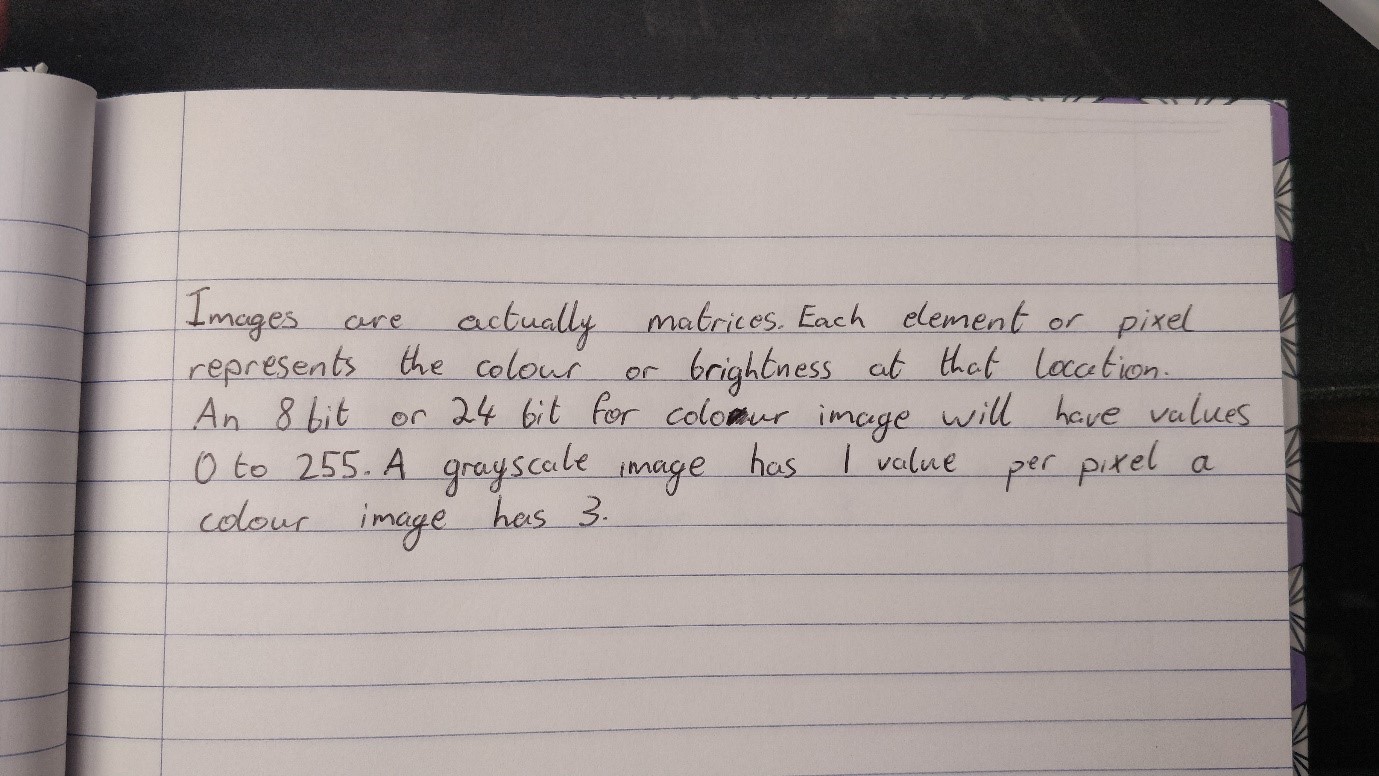 Images are actually matrices. Each element or pixel
represents the colour or brightness at that location.
An 8 bit or 24 bit for colour image will have values
0 to 255. A grayscale image has 1 value per pixel a
colour image has 3.